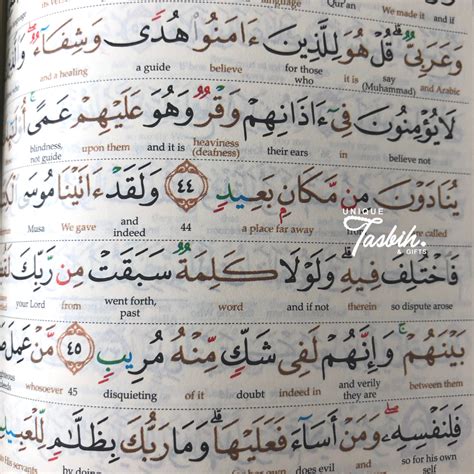 language Qur'an We made it and if
وَعَرَبِيٌّ ۗ قُلْ هُوَ لِلَّذِينَ ءَامَنُوا هُدًى وَشِفَآءٌ ۖ
and a healing a guide believe for those who it is say (Muhammad) and Arabic
لَا يُؤْمِنُونَ فِىٓ ءَاذَانِهِمْ وَقْرٌ وَهُوَ عَلَيْهِمْ عَمًى ۚ
blindness, not guide upon them and it is heaviness (deafness) their ears in believe not
يُنَادَوْنَ مِن مَّكَانٍ بَعِيدٍ ٤٤ وَلَقَدْ ءَاتَيْنَا مُوسَى
Musa We gave and indeed 44 a place far away are called
UNIQUE
Tasbih.
& GIFTS
فَٱخْتُلِفَ فِيهِ ۗ وَلَوْلَا كَلِمَةٌ سَبَقَتْ مِن رَّبِّكَ
your Lord from went forth, past word and if not therein so dispute arose
بَيْنَهُمْ ۚ وَإِنَّهُمْ لَفِى شَكٍّ مِّنْهُ مُرِيبٍ ٤٥ مَّنْ عَمِلَ
whosoever 45 disquieting of it doubt indeed in and verily they are between them
فَلِنَفْسِهِۦ ۖ وَمَنْ أَسَآءَ فَعَلَيْهَا ۗ وَمَا رَبُّكَ بِظَلَّٰمٍ لِّلْعَبِيدِ
His servants by doing does evil and who so for his own self